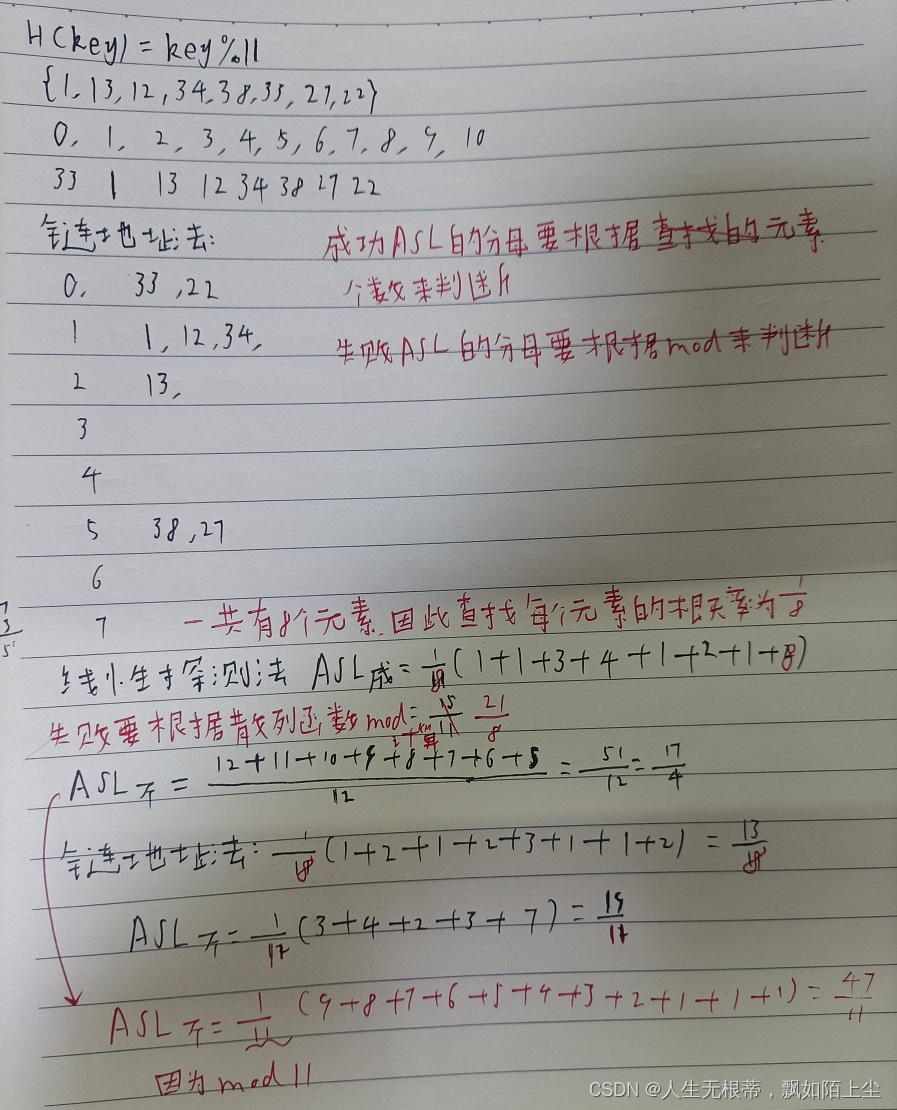 H(key) = key%11
{1,13,12,34,38,33,27,22}
0, 1, 2, 3, 4, 5, 6, 7, 8, 9, 10
33 1 13 12 34 38 27 22
链地址法:
成功ASL的分母要根据查找的元素
0, 33,22
个数来判断
1 1,12,34,
失败ASL的分母要根据mod来判断
2 13,
3
4
5 38,27
6
7 一共有8个元素.因此查找每个元素的概率为1/8
线性探测法 ASL成=1/8(1+1+3+4+1+2+1+8)
失败要根据散列函数mod= 21/8
ASL不= 12+11+10+9+8+7+6+5/12 = 51/12 = 17/4
链地址法: 1/8(1+2+1+2+3+1+1+2) = 13/8
ASL不= (3+4+2+3+7) = 19
ASL不= 1/11 (9+8+7+6+5+4+3+2+1+1+1) = 47/11
因为mod 11
CSDN @人生无根蒂，飘如陌上尘